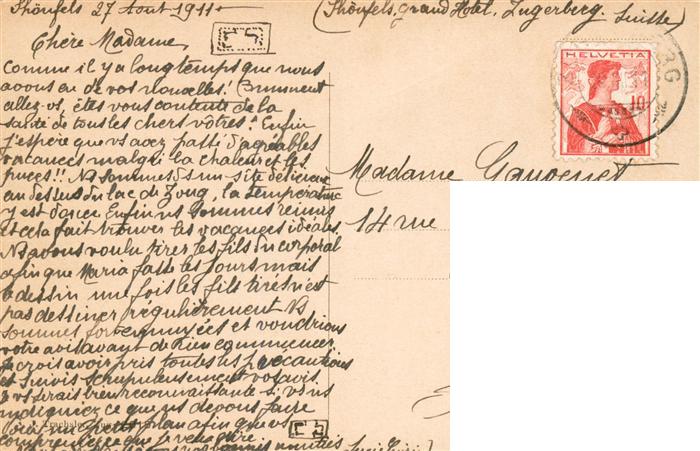 Shônfels 27 Aout 1911
(Shônfels. grand Hotel. Zugerberg. Suisse)
Chère Madame,
comme il y a longtemps que nous
avons eu de vos nouvelles! Comment
allez-vs, êtes vous contente de la
santé de tous les chers vôtres? Enfin
j'espère que vs avez passé d'agréables
vacances malgré la chaleur et les
puces!! Ns sommes ds un site délicieux
au dessus du lac de Zoug, la température
y est douce. Enfin ns sommes réunis
et cela fait trouver les vacances idéales.
Ns avons voulu tirer les fils du corporal
afin que Maria fasse les jours mais
le dessin une fois les fils tirés n'est
pas dessiner régulièrement. Ns
sommes fort ennuyées et voudrions
votre avis avant de rien commencer.
Je crois avoir pris toutes les précautions
et suivis scrupuleusement vos avis.
Je vs serais bien reconnaissante si vous
m'indiquiez ce que ns devons faire
ou un petit plan afin que vs
compreniez ce que je veux dire
HELVETIA
10
Madame
14 rue